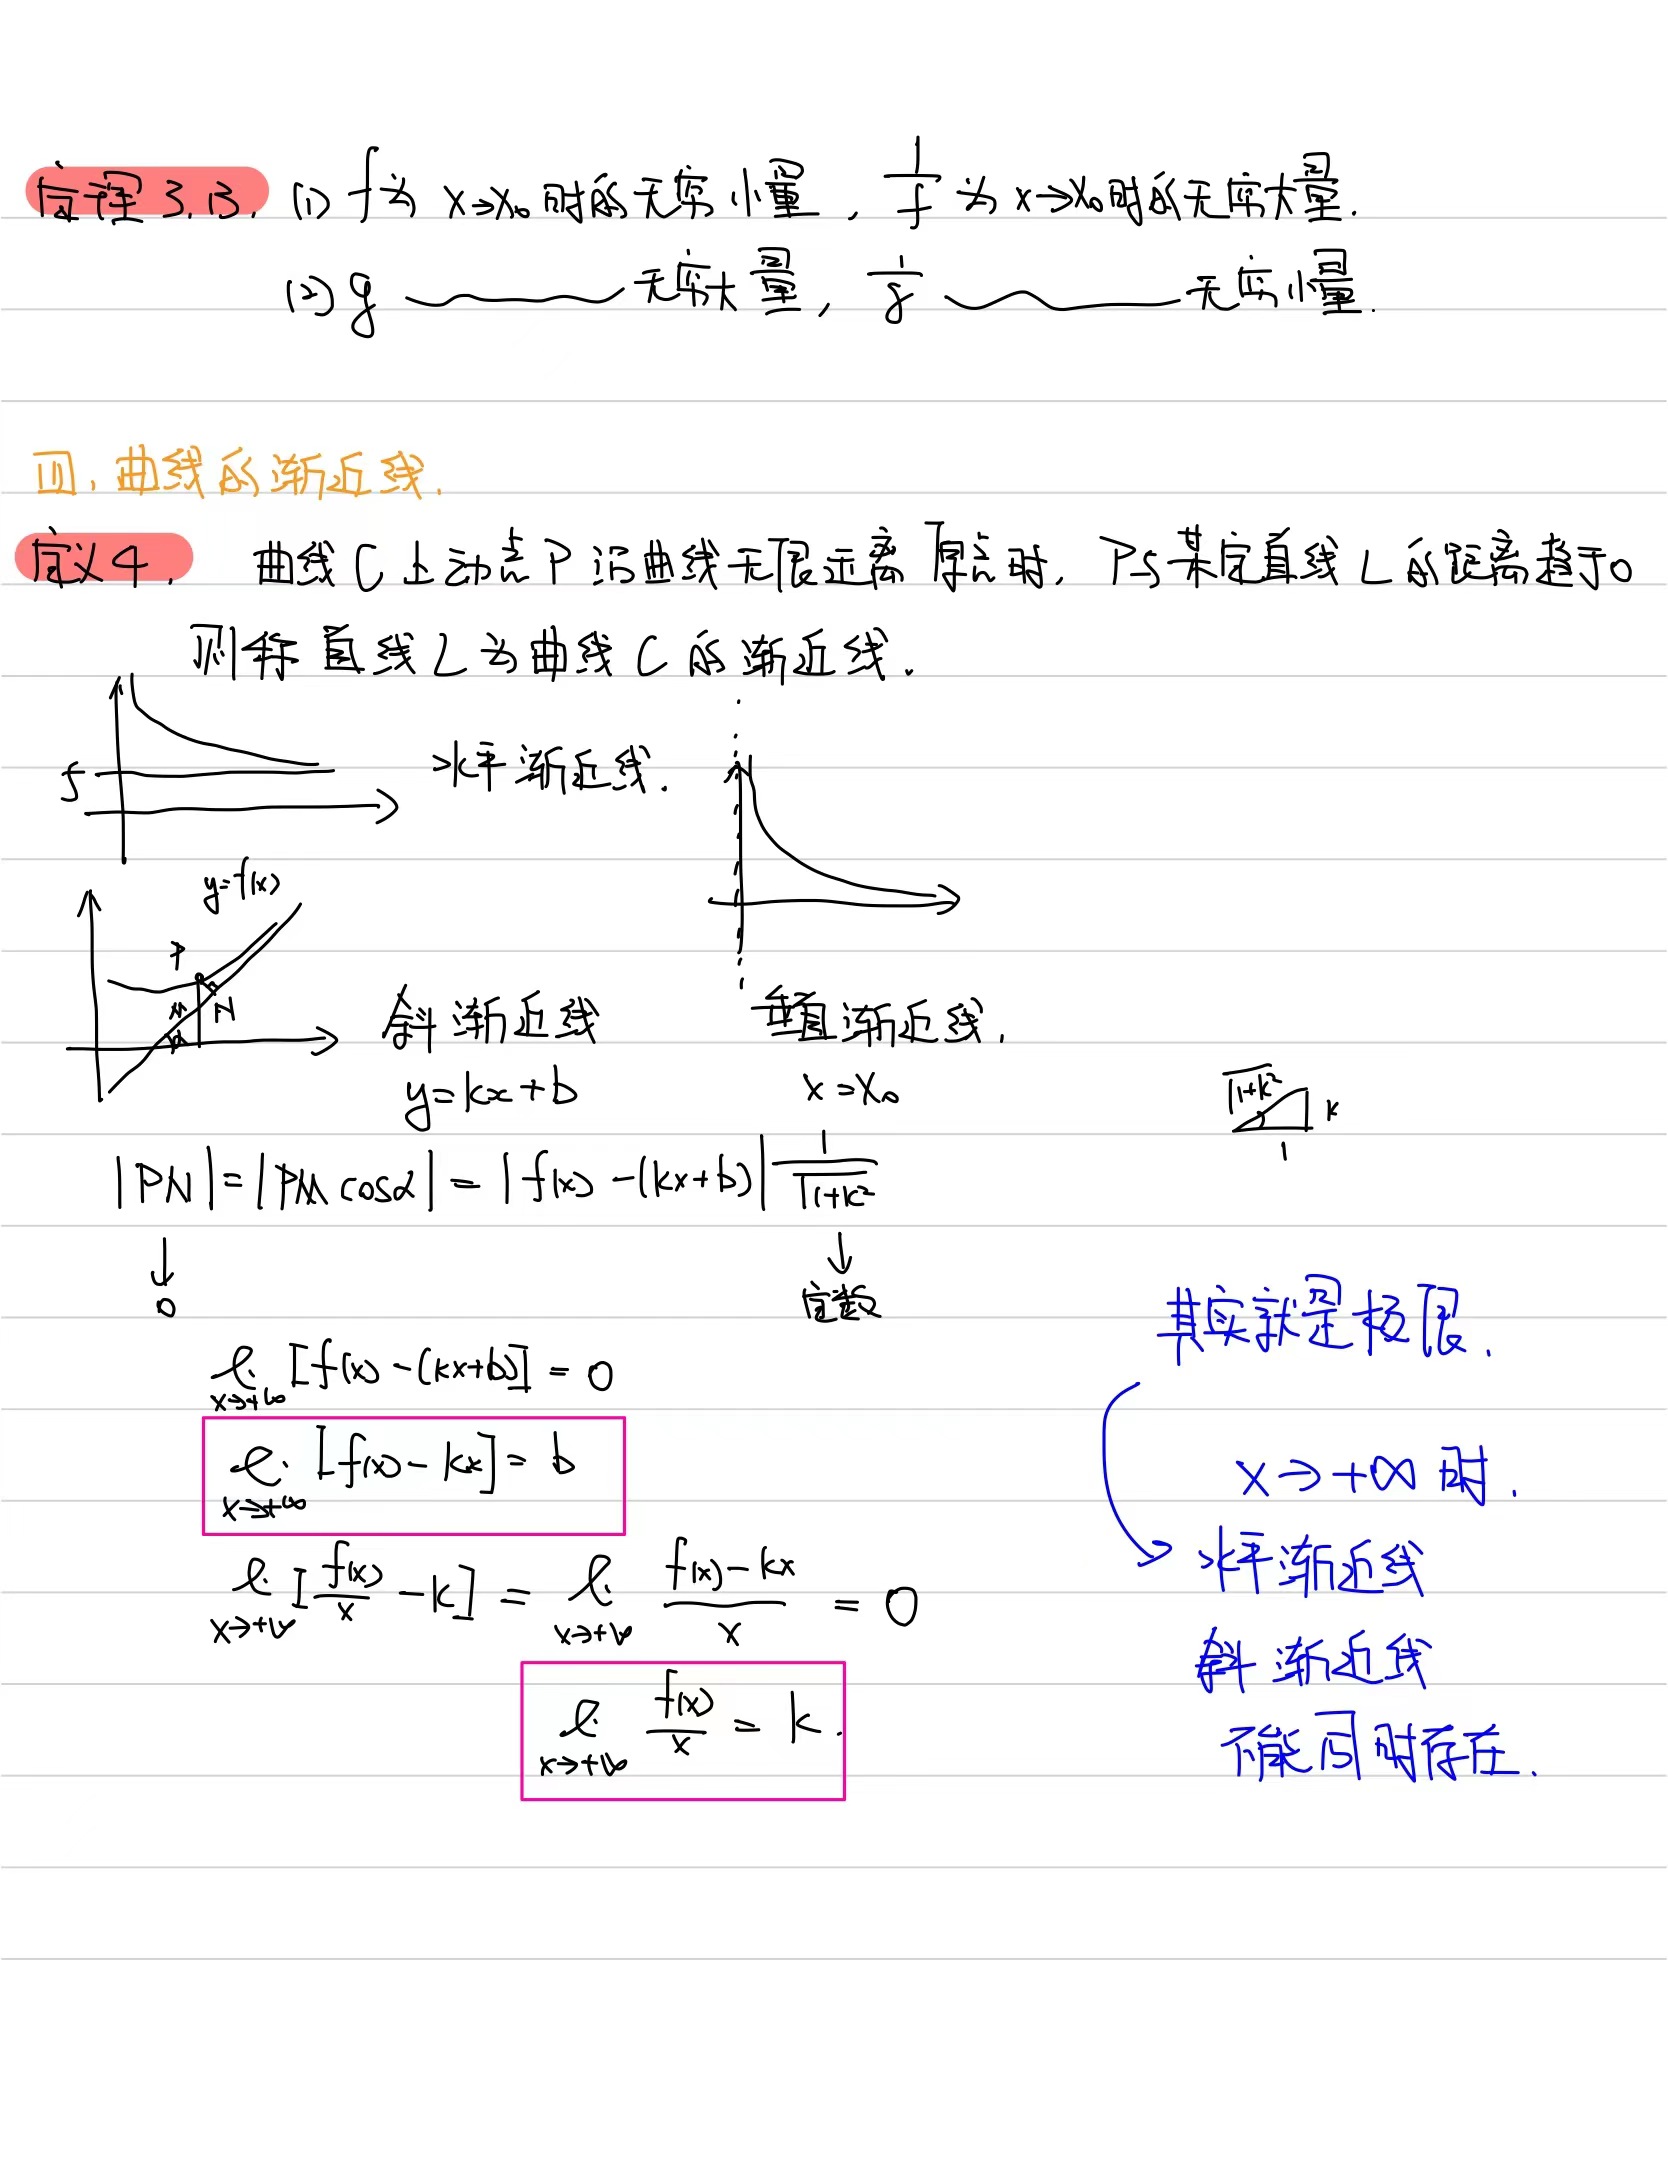 定理3.13. (1) f为 x→x₀时的无穷小量, 1/f 为 x→x₀时的无穷大量.
(2) g ~~~ 无穷大量, 1/g ~~~ 无穷小量.
四、曲线的渐近线.
定义4. 曲线C上动点P沿曲线无限远离原点时, P与某定直线L的距离趋于0
则称直线L为曲线C的渐近线.
水平渐近线.
y=f(x)
P
M
N
α
斜渐近线
y=kx+b
垂直渐近线.
x=x₀
√1+k²
k
1
|PN|=|PM cosα|=|f(x)-(kx+b)| 1/√1+k²
↓
0
↓
定数
lim x→+∞ [f(x)-(kx+b)]=0
lim x→+∞ [f(x)-kx]=b
lim x→+∞ [f(x)/x-k]=lim x→+∞ (f(x)-kx)/x=0
lim x→+∞ f(x)/x=k.
其实就是极限.
x→+∞时.
水平渐近线
斜渐近线
不能同时存在.